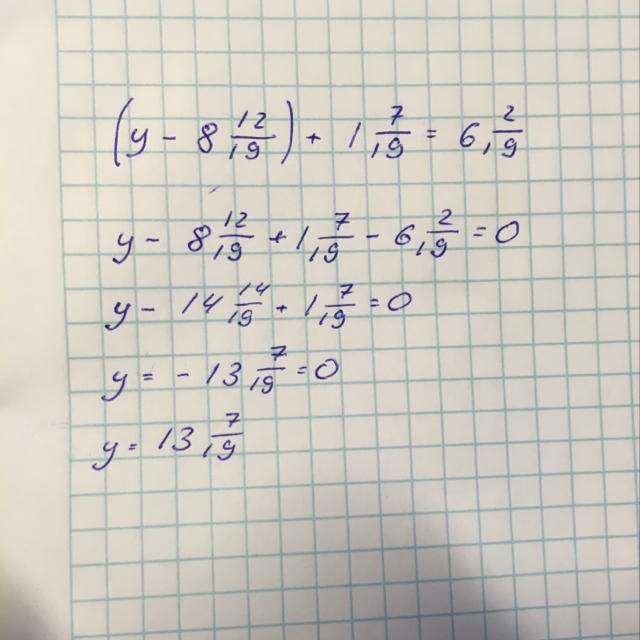 (y - 8 12/19) + 1 7/19 = 6 2/19
y - 8 12/19 + 1 7/19 - 6 2/19 = 0
y - 14 14/19 + 1 7/19 = 0
y = - 13 7/19 = 0
y = 13 7/19